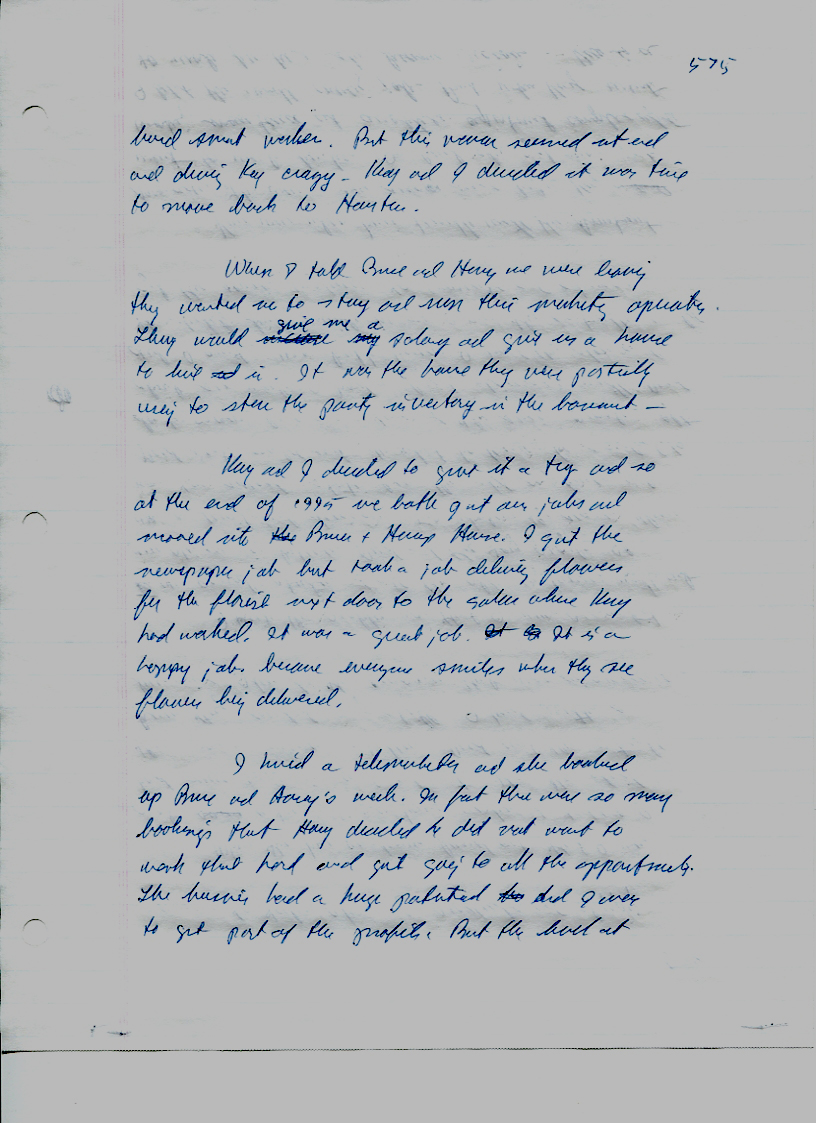 575
hard smart worker. But this never seemed at end
and driving Kay crazy - Kay and I decided it was time
to move back to Houston.
When I told Bruce and Harry we were leaving
they wanted me to stay and run this marketing operation.
They would give me a salary and give us a house
to live in. It was the house they were partially
using to store the party inventory in the basement -
Kay and I decided to give it a try and so
at the end of 1995 we both quit our jobs and
moved into Bruce + Harrys House. I quit the
newspaper job but took a job delivering flowers
for the florist next door to the salon where Kay
had worked. It was a great job. It is a
happy job because everyone smiles when they see
flowers being delivered.
I hired a telemarketer and she booked
up Bruce and Harry's week. In fact there were so many
bookings that Harry decided he did not want to
work that hard and quit going to all the appointments.
The business had a huge potential and I was
to get part of the profits. But the at